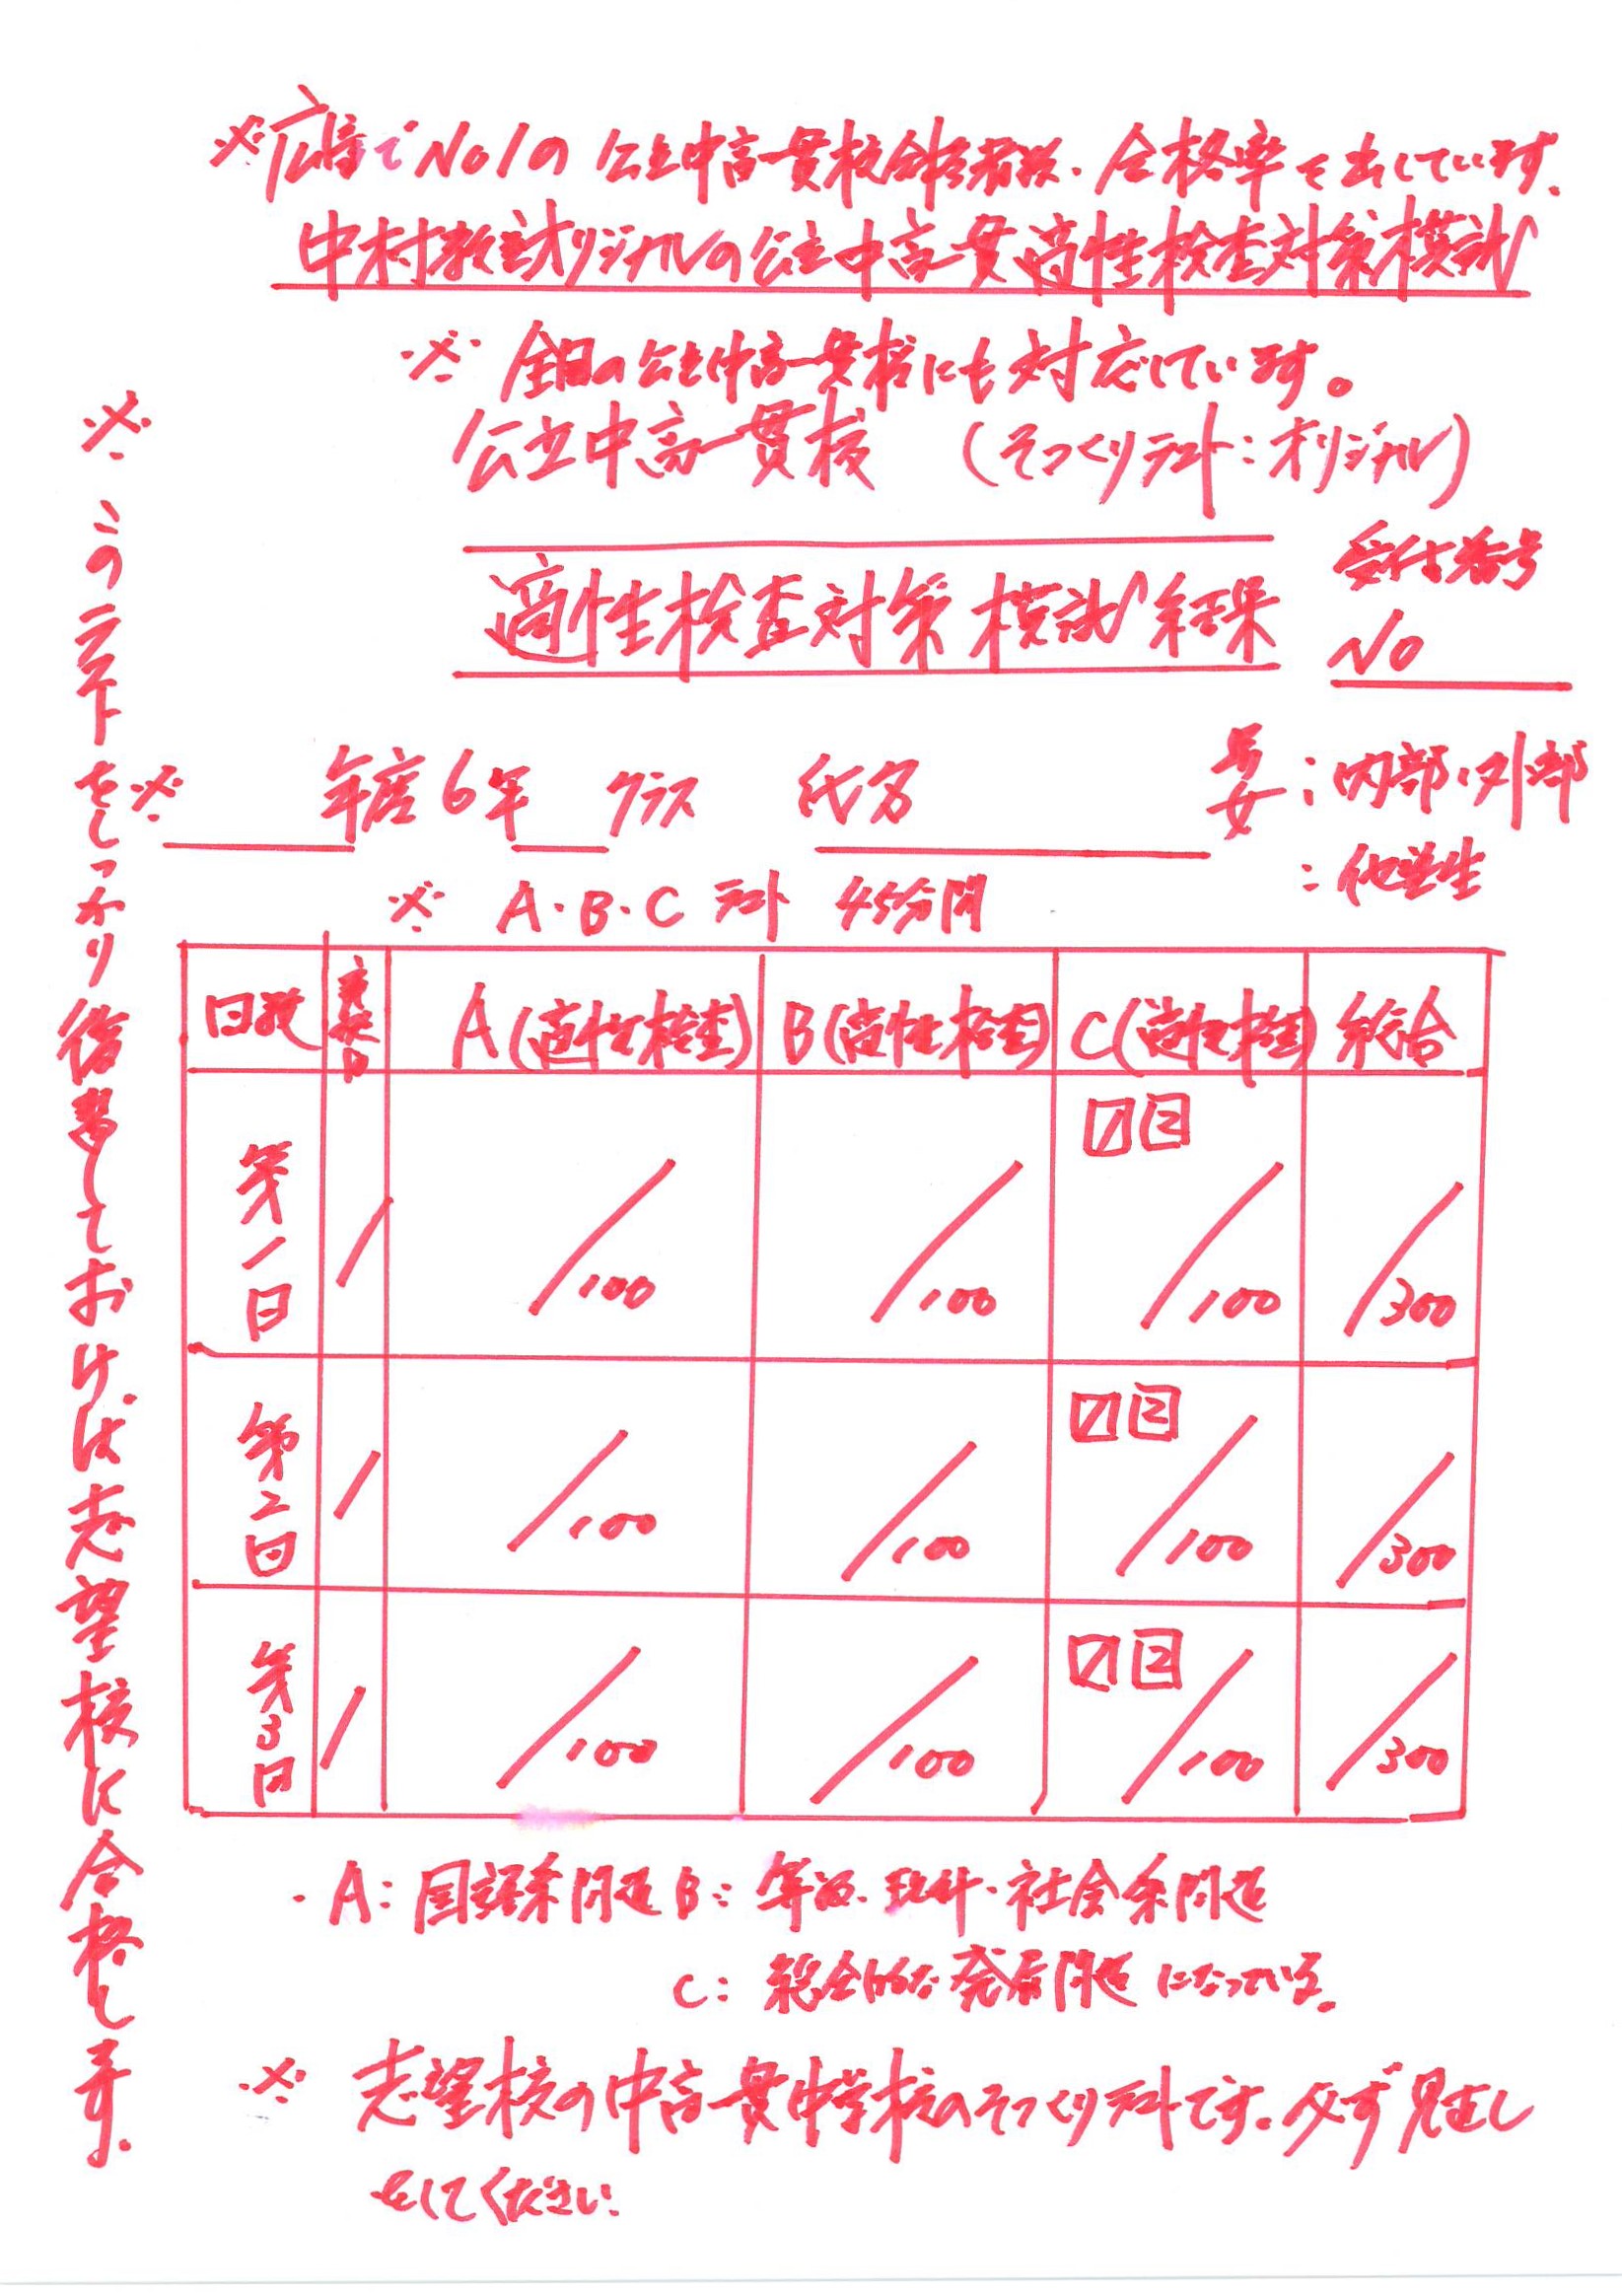 ※広島でNo1の公立中高一貫校合格者数・合格率を出しています。
中村教室オリジナルの公立中高一貫適性検査対策模試
※全国の公立中高一貫校にも対応しています。
公立中高一貫校 (そっくりテスト:オリジナル)
適性検査対策模試結果
受付番号
No
※ 年度6年 クラス 氏名
男女:内部・外部
:他学生
※ A・B・C テスト 45分間
回数 実施日 A(適性検査) B(適性検査) C(適性検査) 総合
第1回 / /100 /100 1 2 /100 /300
第2回 / /100 /100 1 2 /100 /300
第3回 / /100 /100 1 2 /100 /300
・A:国語系問題 B:算数・理科・社会系問題
C:総合的な発展問題になっている。
※志望校の中高一貫中学校のそっくりテストです。必ず見直し
をしてください。
※このテストをしっかり復習しておけば志望校に合格します。